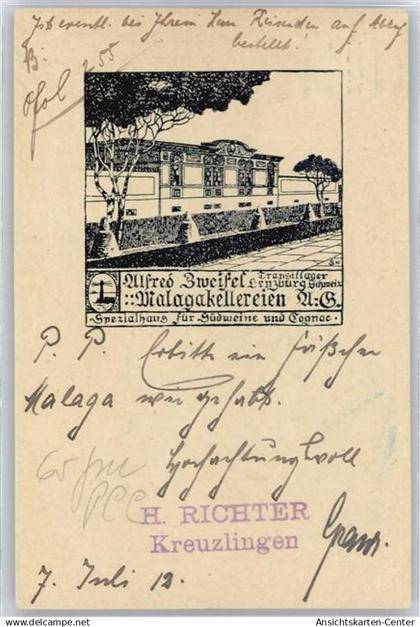 Ist eventl. bei Ihrem Herrn Reisenden auf
bestellt!
255
Alfred Zweifel Transitlager
Lenzburg Schweiz
::Malagakellereien A:G.
·Spezialhaus für Südweine und Cognac·
P. P. Erbitte ein Fäßchen
Malaga wie gehabt.
Hochachtungsvoll
H. RICHTER
Kreuzlingen
7. Juli 12.
© Ansichtskarten-Center
Ansichtskarten-Center